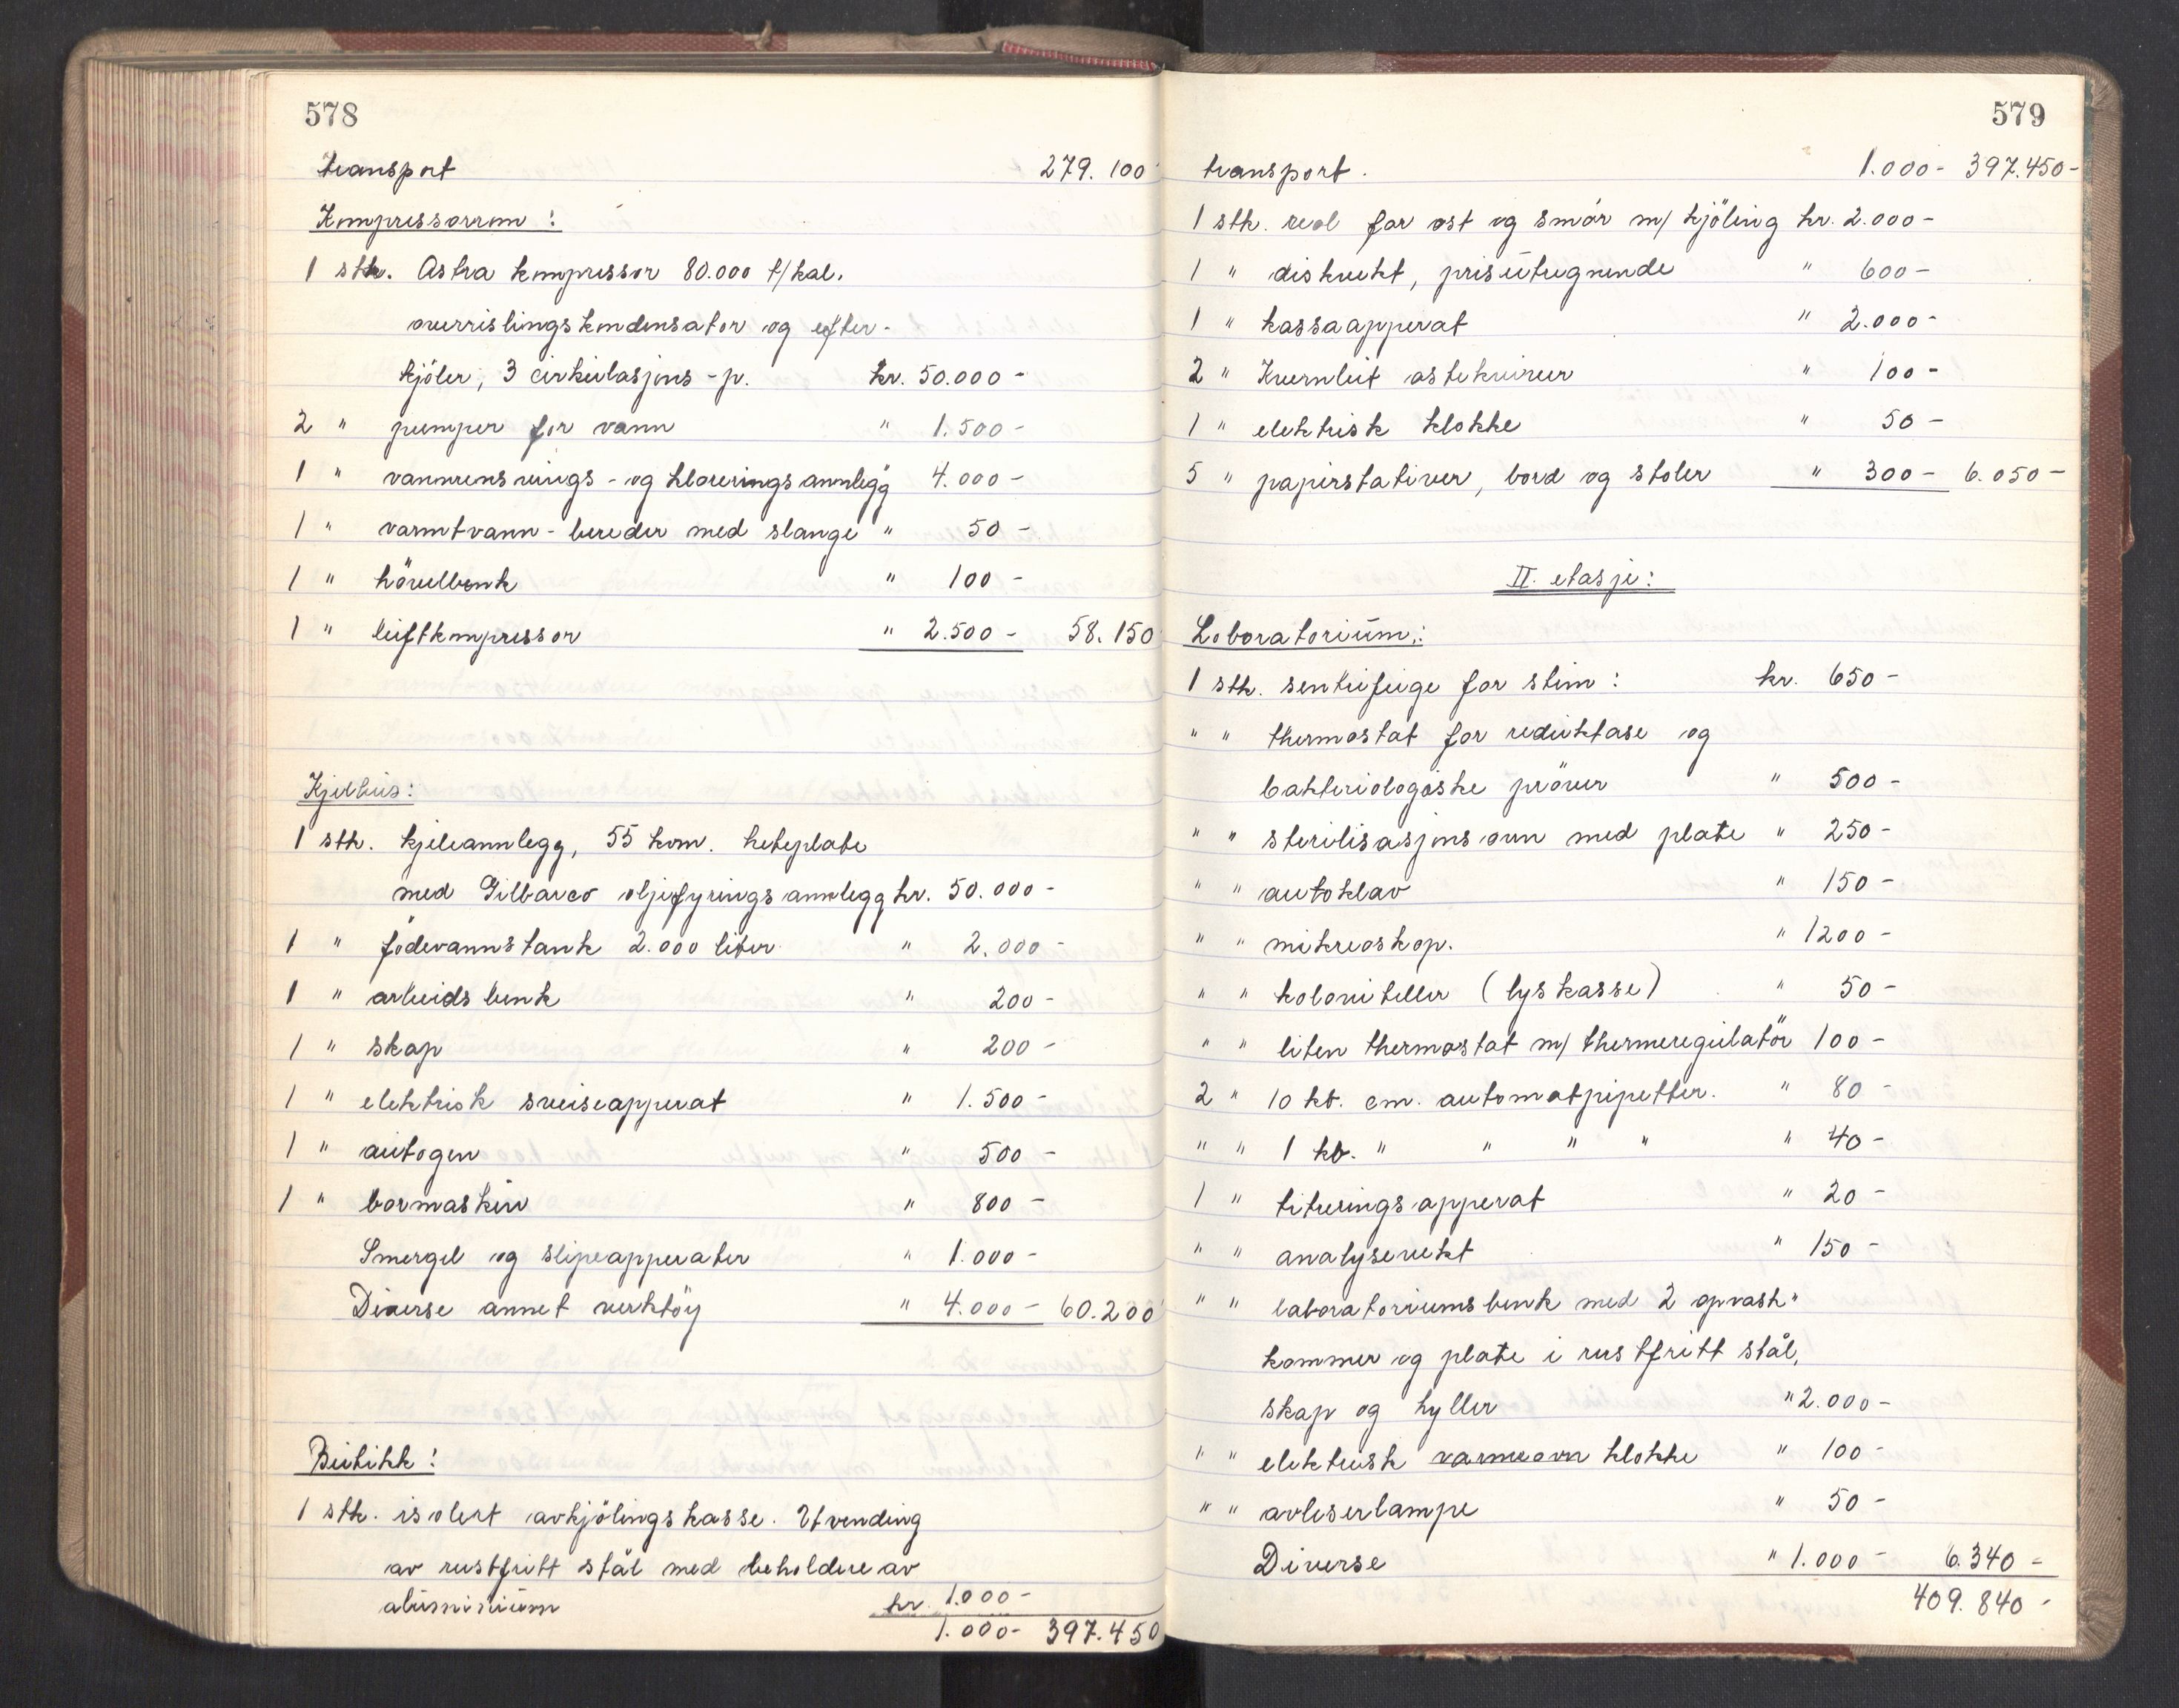 578
transport 279.100
Kompressorrom :
1 stk. Astra kompressor 80.000 t/kal.
overrislingskondensator og efter-
kjöler, 3 cirkulasjons-p. kr. 50.000 -
2 " pumper for vann " 1.500 -
1 " vannrensnings- og kloreringsannlegg 4.000 -
1 " varmtvann-bereder med slange " 50 -
1 " hövelbenk " 100 -
1 " luftkompressor " 2.500 - 58.150
Kjelhus :
1 stk. kjeleannlegg, 55 kvm. heteplate
med Gilbarco oljefyringsannlegg kr. 50.000 -
1 " födevannstank 2.000 liter " 2.000 -
1 " arbeidsbenk " 200 -
1 " skap " 200 -
1 " elektrisk sveiseapperat " 1.500 -
1 " autogen " 500 -
1 " bormaskin " 800 -
Smergel og slipeapperater " 1.000 -
Diverse annet verktöy " 4.000 - 60.200
Butikk :
1 stk. isolert avkjölingskasse. Utvending
av rustfritt stål med beholdere av
aluminium kr. 1.000 -
1.000 - 397.450
579
transport. 1.000 - 397.450 -
1 stk. reol for ost og smör m/ kjöling kr. 2.000 -
1 " diskvekt, prisutregnende " 600 -
1 " kassaapperat " 2.000 -
2 " Kvernlit ostekniver " 100 -
1 " elektrisk klokke " 50 -
5 " papirstativer, bord og stoler " 300 - 6.050 -
II. etasje :
Loboratorium :
1 stk. sentrifuge for stim : kr. 650 -
" " thermostat for reduktase og
bakteriologiske pröver " 500 -
" " sterilisasjonsovn med plate " 250 -
" " autoklav " 150 -
" " mikroskop. " 1200 -
" " koloniteller (lyskasse) " 50 -
" " liten thermostat m/ thermeregulatör 100 -
2 " 10 kb. cm. automatpipetter. " 80 -
" " 1 kb. " " " " " 40 -
1 " titreringsapperat " 20 -
" " analysevekt " 150 -
" " laboratoriumsbenk med 2 opvask"
kommer og plate i rustfritt stål,
skap og hyller " 2.000 -
" " elektrisk varmeovn klokke " 100 -
" " avleserlampe " 50 -
Diverse " 1.000 - 6.340 -
409.840 -